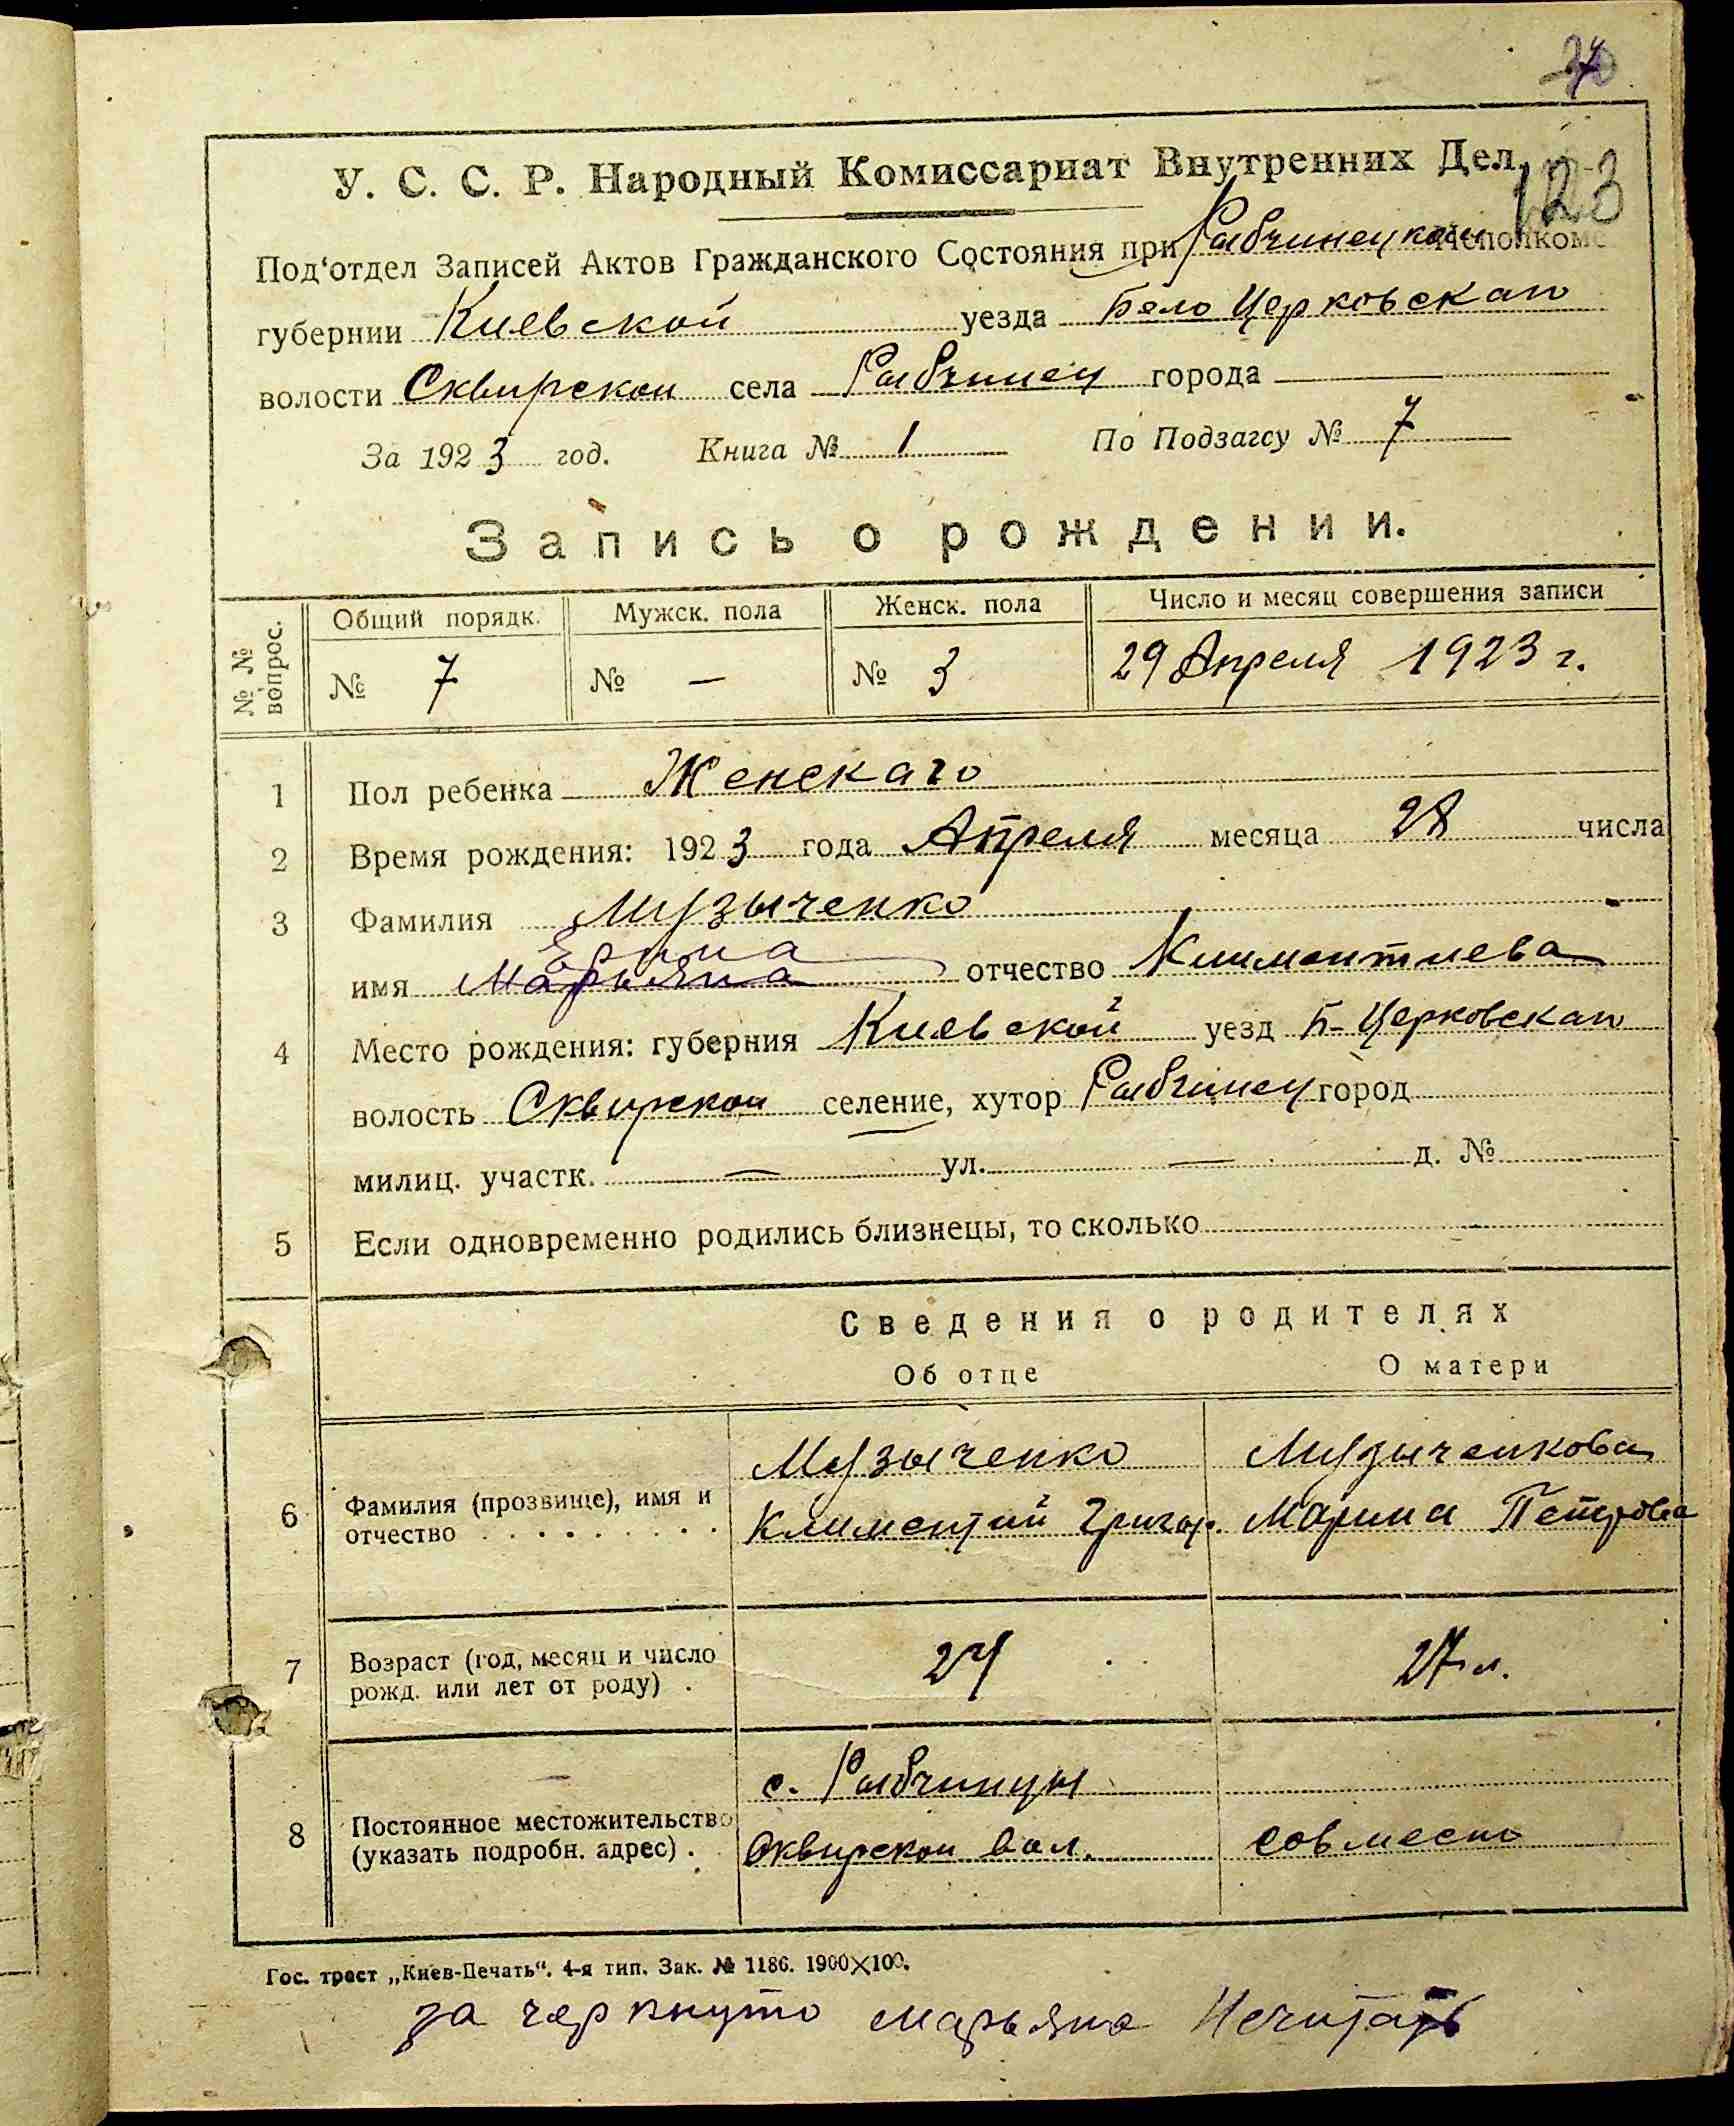 123
У. С. С. Р. Народный Комиссариат Внутренних Дел.
Под'отдел Записей Актов Гражданского Состояния при Рабчинецком Исполкоме
губернии Киевской уезда Бело Церковскаго
волости Сквирской села Рабчинец города
За 1923 год. Книга № 1 По Подзагсу № 7
Запись о рождении.
№ № вопрос. Общий порядк. Мужск. пола Женск. пола Число и месяц совершения записи
№ 7 № — № 3 29 Апреля 1923 г.
1 Пол ребенка Женскаго
2 Время рождения: 1923 года Апреля месяца 28 числа
3 Фамилия Музыченко
имя Марьяна отчество Климентиева
4 Место рождения: губерния Киевской уезд Б-Церковскаго
волость Сквирской селение, хутор Рабчинец город
милиц. участк. — ул. — д. №
5 Если одновременно родились близнецы, то сколько
Сведения о родителях
Об отце О матери
Музыченко Музыченкова
6 Фамилия (прозвище), имя и отчество Климентий Григор. Марина Петрова
7 Возраст (год, месяц и число рожд. или лет от роду) . 24 27 л.
с. Рабчинцы
8 Постоянное местожительство (указать подробн. адрес) . Сквирской вол. совместно
Гос. трест „Киев-Печать“. 4-я тип. Зак. № 1186. 1900×100.
зачеркнуто марьяна Нечитать